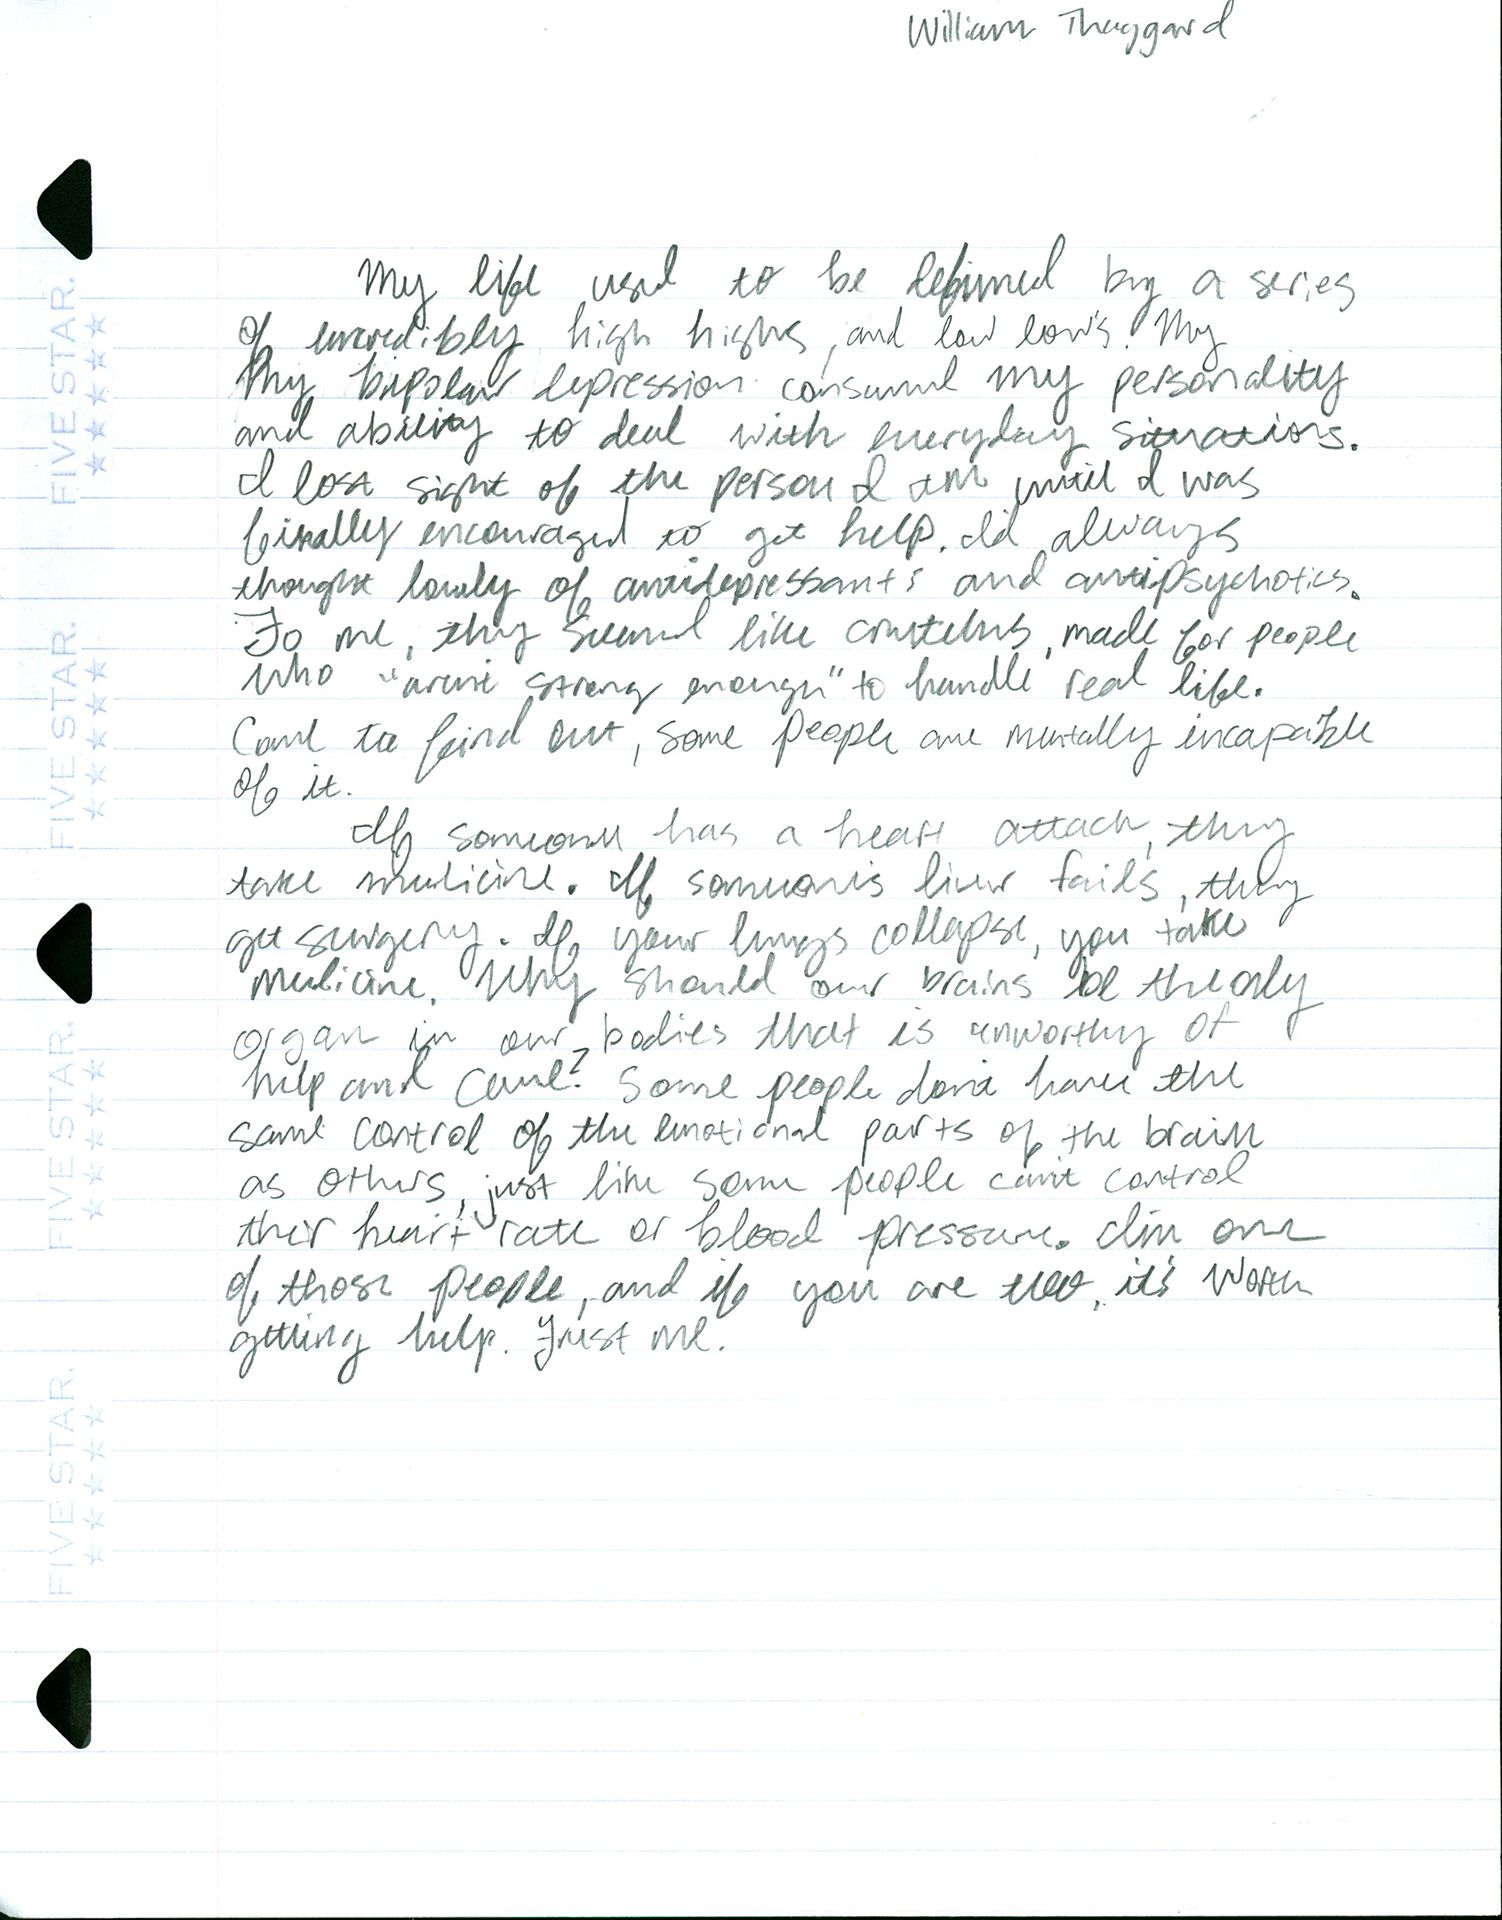 William Thaggard
My life used to be defined by a series
of incredibly high highs, and low low's. My
My bipolar depression consumed my personality
and ability to deal with everyday situations.
I lost sight of the person I am until I was
finally encouraged to get help. I'd always
thought lowly of antidepressants and antipsychotics.
To me, they seemed like crutches, made for people
who "aren't strong enough" to handle real life.
Come to find out, some people are mentally incapable
of it.
If someone has a heart attack, they
take medicine. If someone's liver fails, they
get surgery. If your lungs collapse, you take
medicine. Why should our brains be the only
organ in our bodies that is unworthy of
help and care? Some people don't have the
same control of the emotional parts of the brain
as others, just like some people can't control
their heart rate or blood pressure. I'm one
of those people, and if you are too, it's worth
getting help. Trust me.
FIVE STAR.
FIVE STAR.
FIVE STAR.
FIVE STAR.